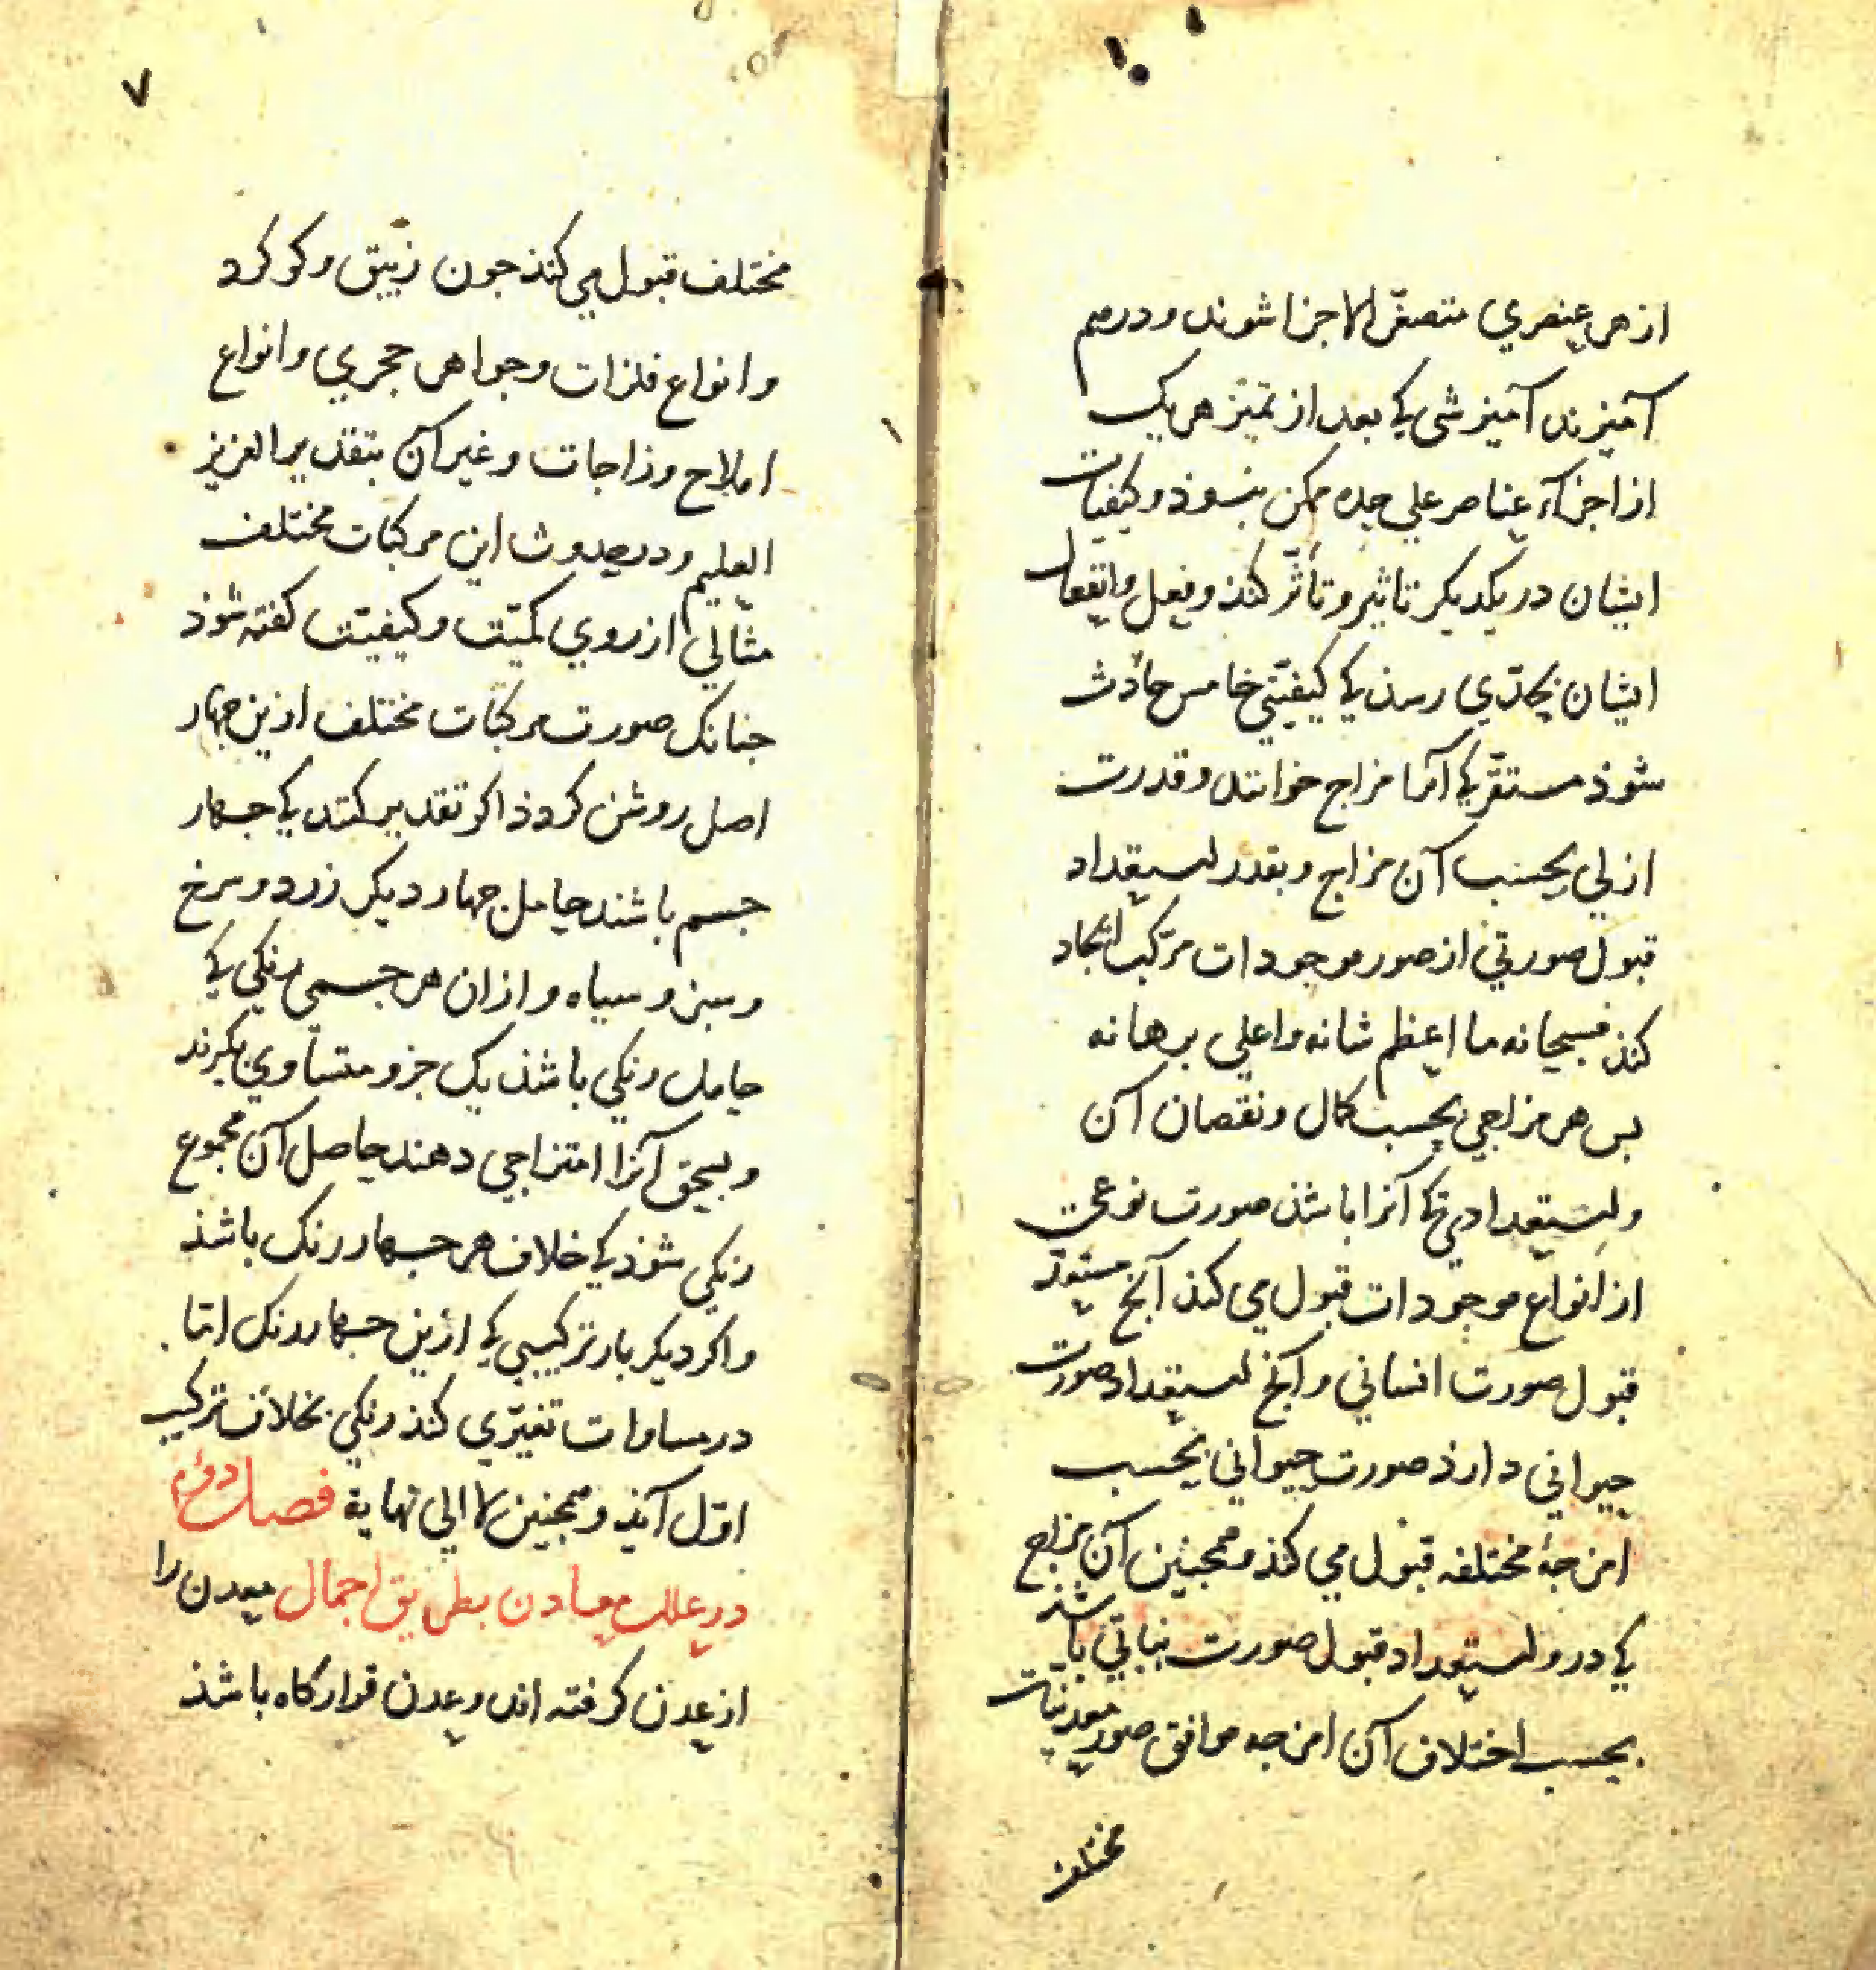 ۱۰
از هر عنصري متصغّر الاجزا شوند و درهم
آميزند آميزشي كي بعد از تميز هر يك
از اجزآء عناصر علي حده ممكن نبسود و كيفيات
ايشان در يكديكر تاثير و تأثّر كنذ و فعل و انفعال
ايشان بحدّي رسد كي كيفيّتي خامس حادث
شوذ مستقرّ كي آنرا مزاج خوانند و قدرت
ازلي بحسب آن مزاج و بقدر استعداد
قبول صورتي از صور موجودات مركب ايجاد
كنذ فسبحانه ما اعظم شانه و اعلي برهانه
بس هر مزاجي بحسب كمال و نقصان آن
و استعدادي كي آنرا باشذ صورت نوعي
از انواع موجودات قبول مي كنذ آنج مستعدّ
قبول صورت انساني و آنج استعداد صورت
حيواني دارذ صورت حيواني بحسب
امزجهٔ مختلفه قبول مي كنذ و همجنين آن مزاج
كي درو استعداد قبول صورت نباتي باشذ
بحسب اختلاف آن امزجه موافق صور معدنيات
مختلف
۷
مختلف قبول مي كنذ جون زيبق و كوكرد
و انواع فلزات و جواهر حجري و انواع
املاح و زاجات و غير آن بتقدير العزيز
العليم و در حدوث اين مركبات مختلف
مثالي از روي كميّت و كيفيّت كفته شوذ
جنانك صورت مركبات مختلف ازين جهار
اصل روشن كردذ اكر تقدير كنند كي جهار
جسم باشند حامل جهار ديكر زرد و سرخ
و سبز و سياه و از ان هر جسمي رنكي كي
حامل رنكي باشذ يك جزو متساوي بكيرند
و بسحق آنرا امتزاجي دهند حاصل آن مجموع
رنكي شوذ كي خلاف هر جهار رنك باشذ
و اكر ديكر بار تركيبي كي ازين جهار رنك اما
در مساوات تغيّري كنذ رنكي بخلاف تركيب
اوّل آيذ و همجنين لا الي نهاية فصل دوم
در علل معادن بطريق اجمال معدن را
از عدن كرفته اند و عدن قراركاه باشذ